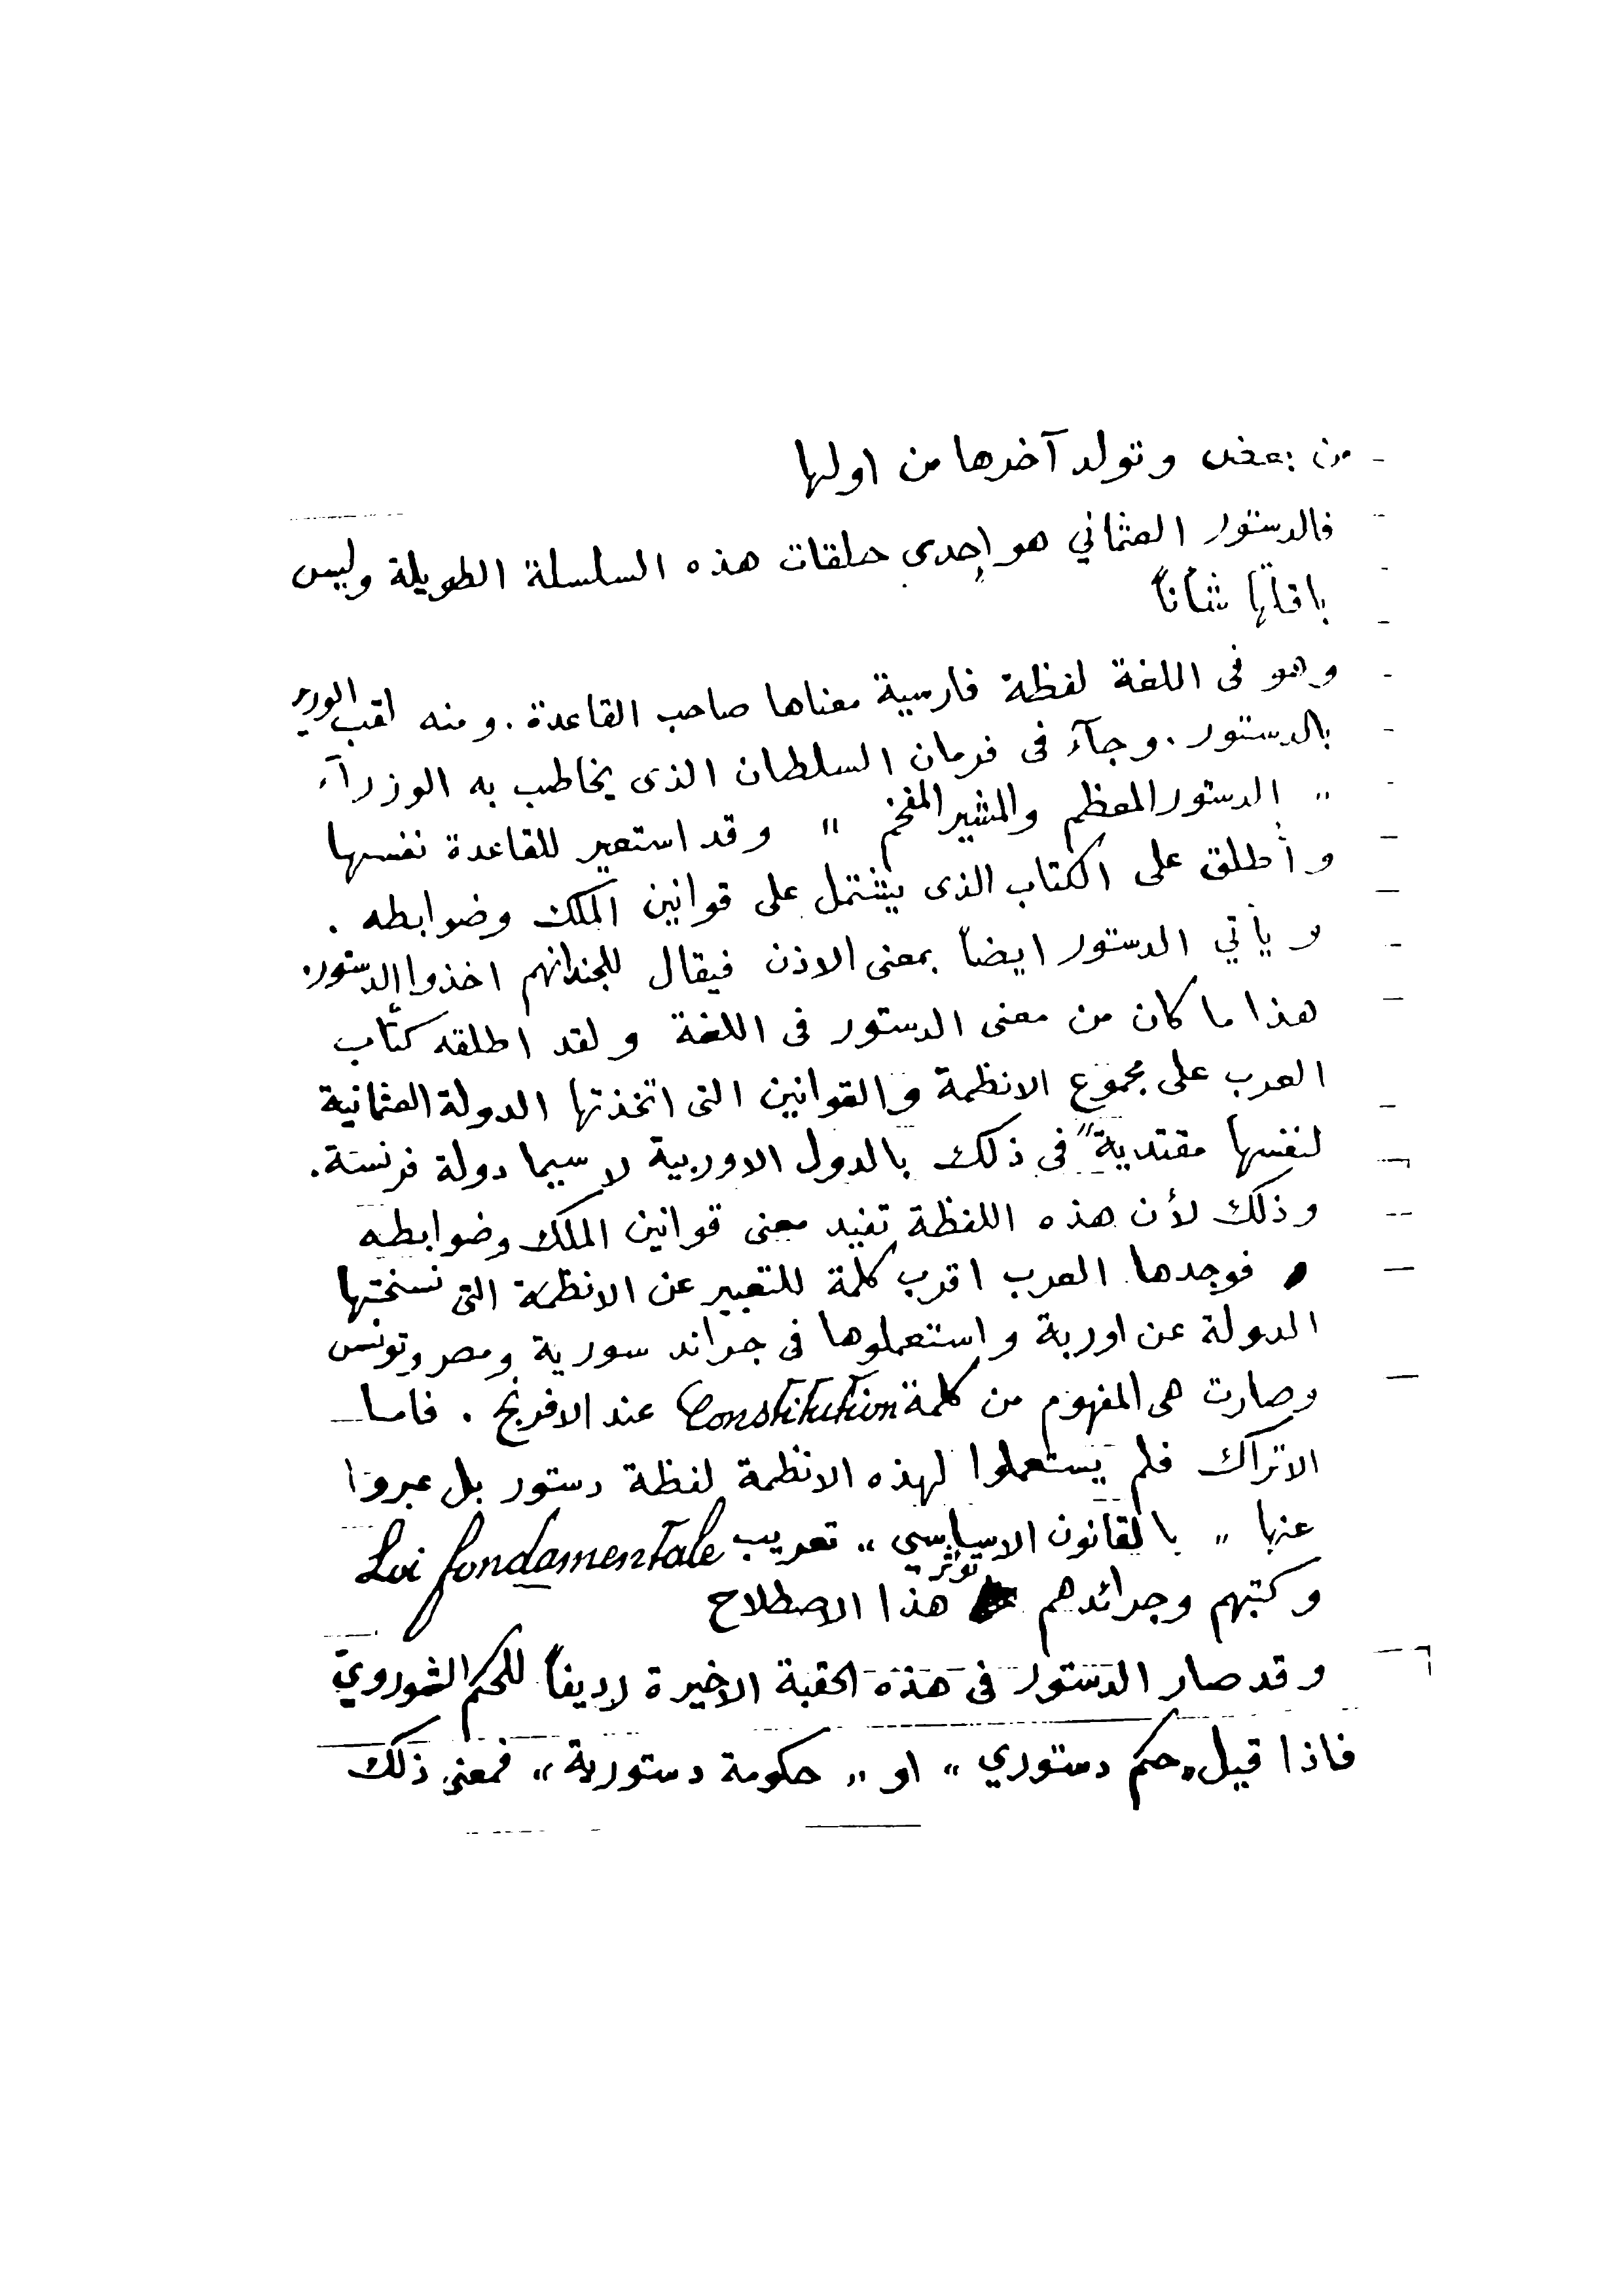 من بعض وتولد آخرها من اولها
فالدستور العثماني هو إحدى حلقات هذه السلسلة الطويلة وليس
باقلّها شأناً
وهو فى اللغة لفظة فارسية معناها صاحب القاعدة . ومنه لقب الوزير
بالدستور . وجآء فى فرمان السلطان الذى يخاطب به الوزرآء
„ الدستور المعظم والمشير المفخم „ وقد استعير للقاعدة نفسها
وأطلق على الكتاب الذى يشتمل على قوانين الملك وضوابطه .
و يأتي الدستور ايضاً بمعنى الاذن فيقال للجند انهم اخذوا الدستور .
هذا ما كان من معنى الدستور فى اللغة ولقد اطلقه كتّاب
العرب على مجموع الانظمة والقوانين التى اتخذتها الدولة العثمانية
لنفسها مقتدية فى ذلك بالدول الاوربية لا سيما دولة فرنسة .
وذلك لأن هذه اللفظة تفيد معنى قوانين الملك وضوابطه
فوجدها العرب اقرب كلمة للتعبير عن الانظمة التى نسختها
الدولة عن اوربة واستعملوها فى جرائد سورية ومصر وتونس
وصارت هى المفهوم من كلمة Constitution عند الافرنج . فاما
الاتراك فلم يستعملوا لهذه الانظمة لفظة دستور بل عبروا
عنها „ بالقانون الاساسي „ تعريب Loi fondamentale
وكتبهم وجرائدهم تؤثر هذا الاصطلاح
وقد صار الدستور فى هذه الحقبة الاخيرة رديفاً للحكم الشوروي
فاذا قيل „ حكم دستوري „ او „ حكومة دستورية „ فمعنى ذلك